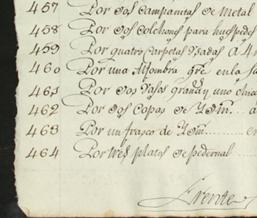 457 Por dos campanitas de metal
458 Por dos colchones para huespedes
459 Por quatro carpetas Vsadas a 4
460 Por una Alfombra gre en la
463 Por dos vasos grand y uno
462 Por dos Copas de Ydm
463 Por un frasco de Ydm en
464 Por tres platos de pedernal
Frente